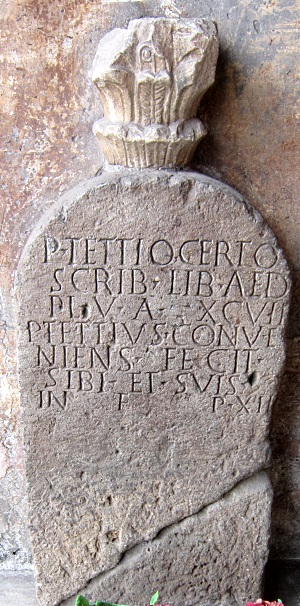 P·TETTIO CERTO
SCRIB·LIB·AED
PL·V·A·XCVII
P TETTIVS·CONVE
NIENS·FECIT·
SIBI·ET·SVIS·
IN F P·XII